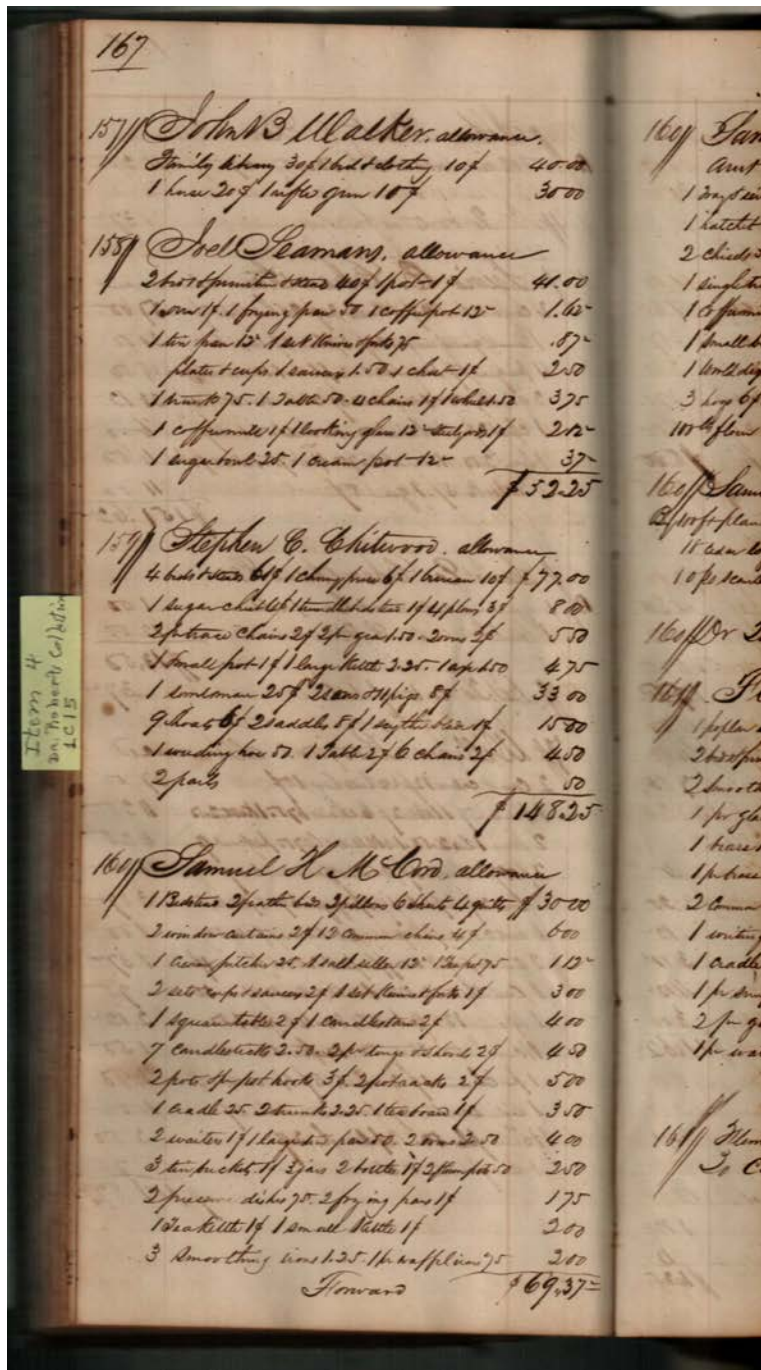 167
157 John B Walker. allowance.
Family library 30$ 1 bed & clothing 10$ 40.00
1 horse 20$ 1 rifle gun 10$ 30 00
158 Joel Seamans. allowance
2 beds & furniture & steads 40$ 1 pot 1$ 41.00
1 oven 1$ 1 frying pan 50 1 coffee pot 12 1.62
1 tin pan 12 1 set knives & forks 75 .87
plates & cups & saucers 1.50 1 chest 1$ 2 50
1 trunk 75. 1 Table 50. 4 chairs 1$ 1 wheel 1.50 3 75
1 coffeemill 1$ 1 looking glass 12 1$ 2 12
1 sugar bowl 25. 1 cream pot 12 37
$52.25
159 Stephen C. Chitwood. allowance
4 beds & steads 61$ 1 6$ 1 bureau 10$ $77.00
1 sugar chest 1$ 4 plows 3$ 8 00
2 pr trace chains 2$ 2 pr gears 1.50. 2 ovens 2$ 5 50
1 small pot 1$ 1 large kettle 2.25. 1 1.50 4 75
1 25$ 2 sows & 11 pigs 8$ 33 00
9 shoats 6$ 2 saddles 8$ 1 scythe 1$ 15 00
1 weeding hoe 50. 1 Table 2$ 6 chairs 2$ 4 50
2 pails 50
$148.25
160 Samuel H McCord. allowance
1 Bedstead 2 feather beds 2 pillows 6 sheets 4 quilts $30 00
2 window curtains 2$ 12 common chairs 4$ 6 00
1 cream pitcher 25. 1 salt seller 12 1 75 1 12
2 sets cups & saucers 2$ 1 set knives & forks 1$ 3 00
1 square table 2$ 1 candlestand 2$ 4 00
7 candlesticks 2.50. 2 pr tongs & shovels 2$ 4 50
2 pots & pr pot hooks 3$. 2 pot racks 2$ 5 00
1 cradle 25. 2 trunks 2.25. 1 tea board 1$ 3 50
2 waiters 1$ 1 large tin pan 50. 2 ovens 2.50 4 00
3 tin buckets 1$ 3 jars 2 bottles 1$ 50 2 50
2 preserve dishes 75. 2 frying pans 1$ 1 75
1 Tea kettle 1$ 1 small kettle 1$ 2 00
3 smoothing irons 1.25. 1 pr waffle irons 75 2 00
Forward $69.37
Item 4
Dr. Roberts Collection
LC15
160 Sam
amt
1
1 hatchet
2 chisels
1 singletree
1
1 small
1
3 hogs 6$
100 lb flour
160 Sam
100 ft plan
18 cedar
10
160 Dr
161
1 poplar
2 beds
2 smooth
1 pr
1
1 pr
2 Common
1 writing
1 cradle
1 pr
2 pr
1 pr
161
To C